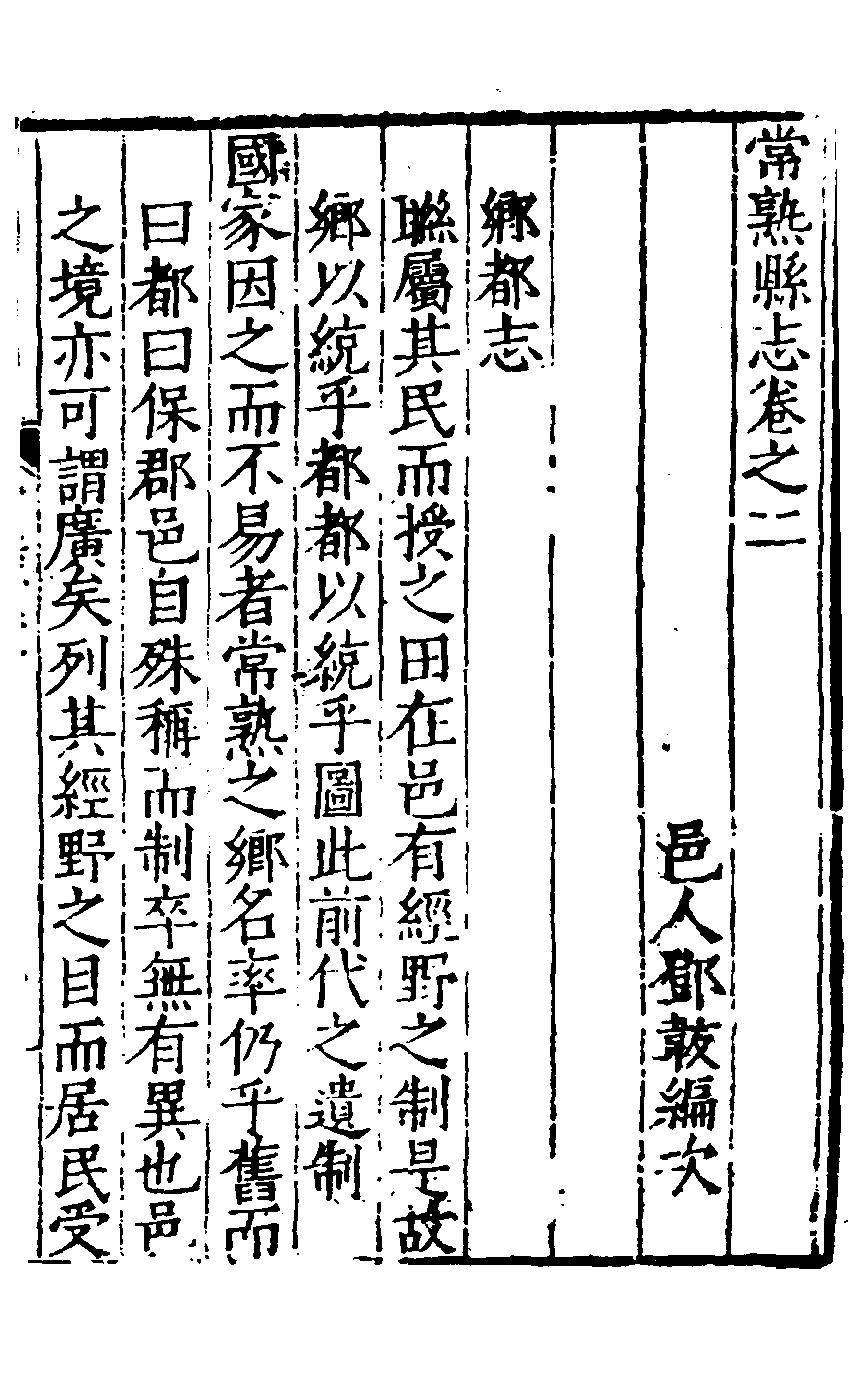 常熟縣志卷之二
邑人鄧韍編次
鄉都志
聮屬其民而授之田在邑有經野之制是故
鄉以統乎都都以統乎圖此前代之遺制
國家因之而不易者常熟之鄉名率仍乎舊而
曰都曰保郡邑自殊稱而制卒無有異也邑
之境亦可謂廣矣列其經野之目而居民受